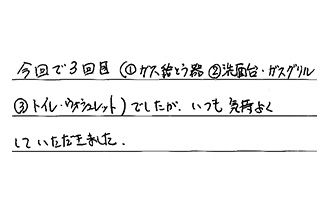 今回で3回目(①ガス給とう器②洗面台・ガスグリル
③トイレ・ウォシュレット)でしたが、いつも気持よく
していただきました.